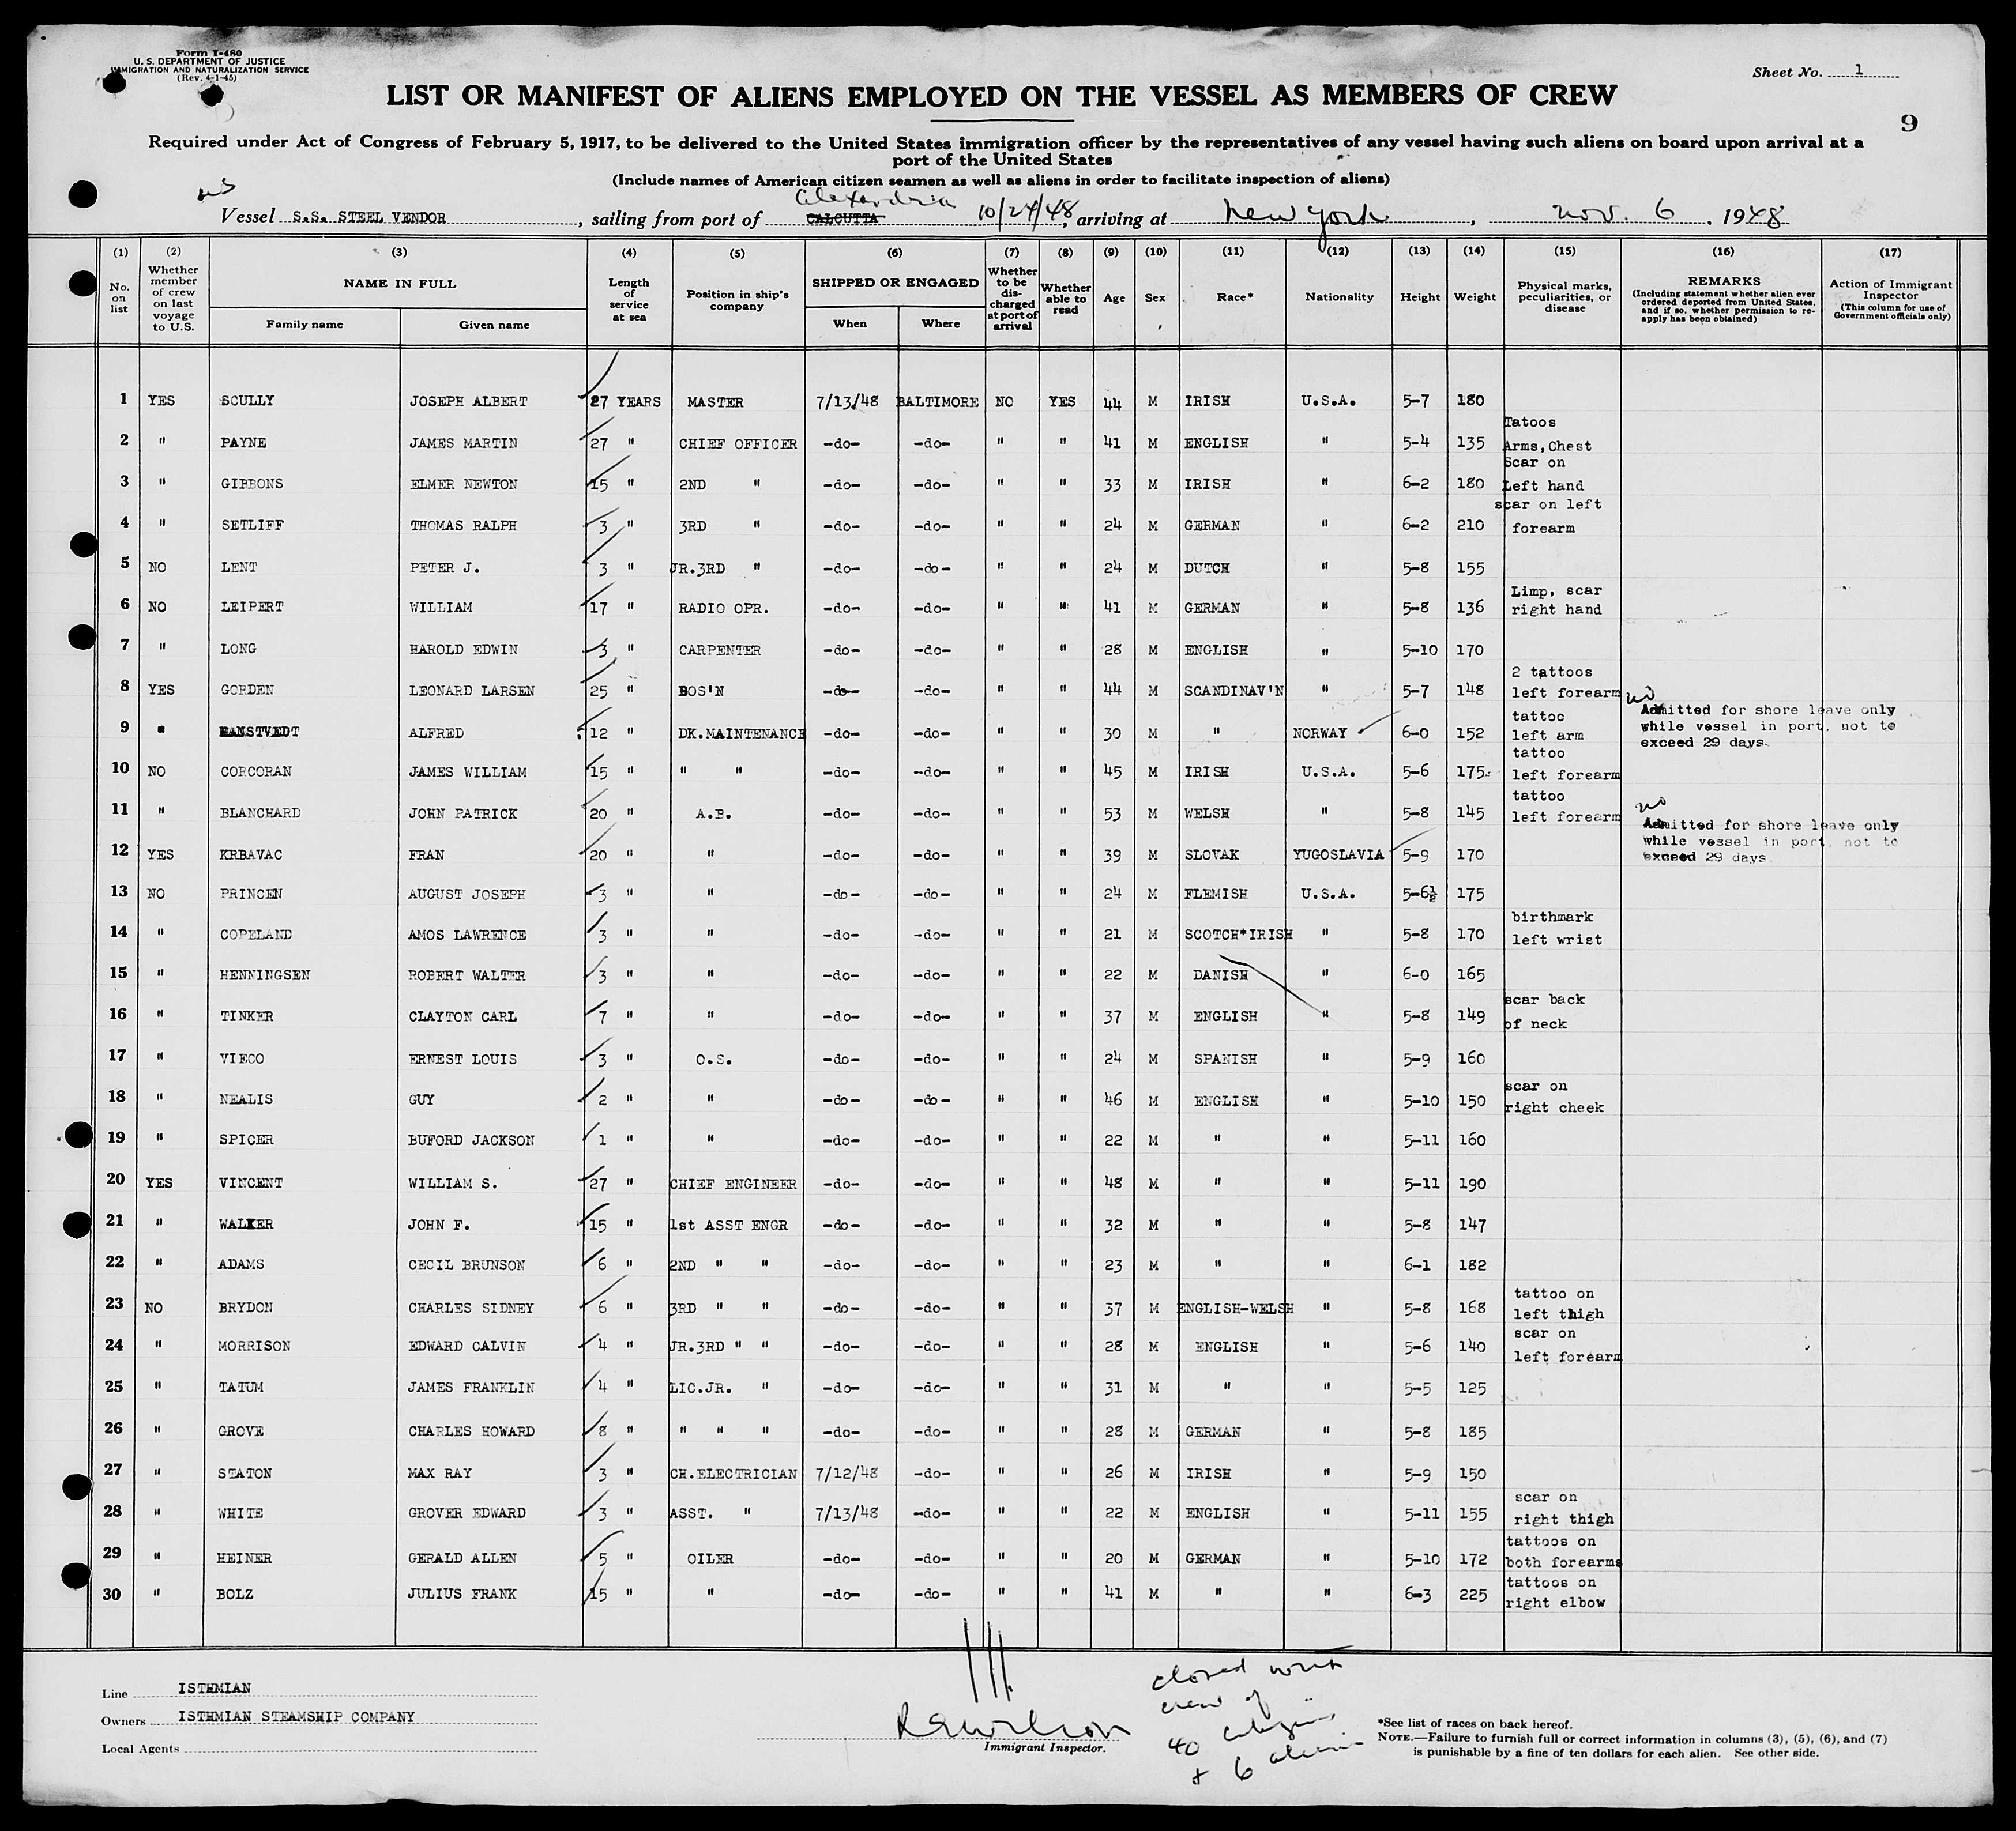 Form I-480
U. S. DEPARTMENT OF JUSTICE
IMMIGRATION AND NATURALIZATION SERVICE
(Rev. 4-1-45)
Sheet No. 1
LIST OR MANIFEST OF ALIENS EMPLOYED ON THE VESSEL AS MEMBERS OF CREW
9
Required under Act of Congress of February 5, 1917, to be delivered to the United States immigration officer by the representatives of any vessel having such aliens on board upon arrival at a
port of the United States
(Include names of American citizen seamen as well as aliens in order to facilitate inspection of aliens)
Alexandria
Vessel S.S. STEEL VENDOR, sailing from port of CALCUTTA 10/24/48, arriving at New York, Nov. 6, 1948
(1) (2) (3) (4) (5) (6) (7) (8) (9) (10) (11) (12) (13) (14) (15) (16) (17)
No. on list
Whether member of crew on last voyage to U.S.
NAME IN FULL
Family name
Given name
Length of service at sea
Position in ship's company
SHIPPED OR ENGAGED
When
Where
Whether to be discharged at port of arrival
Whether able to read
Age
Sex
Race*
Nationality
Height
Weight
Physical marks, peculiarities, or disease
REMARKS
(Including statement whether alien ever ordered deported from United States, and if so, whether permission to re-apply has been obtained)
Action of Immigrant Inspector
(This column for use of Government officials only)
1 YES SCULLY JOSEPH ALBERT 27 YEARS MASTER 7/13/48 BALTIMORE NO YES 44 M IRISH U.S.A. 5-7 180
2 " PAYNE JAMES MARTIN 27 " CHIEF OFFICER -do- -do- " " 41 M ENGLISH " 5-4 135 Tatoos Arms, Chest
3 " GIBBONS ELMER NEWTON 15 " 2ND " -do- -do- " " 33 M IRISH " 6-2 180 Scar on Left hand
4 " SETLIFF THOMAS RALPH 3 " 3RD " -do- -do- " " 24 M GERMAN " 6-2 210 scar on left forearm
5 NO LENT PETER J. 3 " JR.3RD " -do- -do- " " 24 M DUTCH " 5-8 155
6 NO LEIPERT WILLIAM 17 " RADIO OPR. -do- -do- " " 41 M GERMAN " 5-8 136 Limp, scar right hand
7 " LONG HAROLD EDWIN 3 " CARPENTER -do- -do- " " 28 M ENGLISH " 5-10 170
8 YES GORDEN LEONARD LARSEN 25 " BOS'N -do- -do- " " 44 M SCANDINAV'N " 5-7 148 2 tattoos left forearm
9 " HANSTVEDT ALFRED 12 " DK.MAINTENANCE -do- -do- " " 30 M " NORWAY 6-0 152 tattoo left arm Admitted for shore leave only while vessel in port, not to exceed 29 days.
10 NO CORCORAN JAMES WILLIAM 15 " " " -do- -do- " " 45 M IRISH U.S.A. 5-6 175 tattoo left forearm
11 " BLANCHARD JOHN PATRICK 20 " A.B. -do- -do- " " 53 M WELSH " 5-8 145 tattoo left forearm
12 YES KRBAVAC FRAN 20 " " -do- -do- " " 39 M SLOVAK YUGOSLAVIA 5-9 170 Admitted for shore leave only while vessel in port, not to exceed 29 days.
13 NO PRINCEN AUGUST JOSEPH 3 " " -do- -do- " " 24 M FLEMISH U.S.A. 5-6½ 175
14 " COPELAND AMOS LAWRENCE 3 " " -do- -do- " " 21 M SCOTCH*IRISH " 5-8 170 birthmark left wrist
15 " HENNINGSEN ROBERT WALTER 3 " " -do- -do- " " 22 M DANISH " 6-0 165
16 " TINKER CLAYTON CARL 7 " " -do- -do- " " 37 M ENGLISH " 5-8 149 scar back of neck
17 " VIECO ERNEST LOUIS 3 " O.S. -do- -do- " " 24 M SPANISH " 5-9 160
18 " NEALIS GUY 2 " " -do- -do- " " 46 M ENGLISH " 5-10 150 scar on right cheek
19 " SPICER BUFORD JACKSON 1 " " -do- -do- " " 22 M " " 5-11 160
20 YES VINCENT WILLIAM S. 27 " CHIEF ENGINEER -do- -do- " " 48 M " " 5-11 190
21 " WALKER JOHN F. 15 " 1st ASST ENGR -do- -do- " " 32 M " " 5-8 147
22 " ADAMS CECIL BRUNSON 6 " 2ND " " -do- -do- " " 23 M " " 6-1 182
23 NO BRYDON CHARLES SIDNEY 6 " 3RD " " -do- -do- " " 37 M ENGLISH-WELSH " 5-8 168 tattoo on left thigh
24 " MORRISON EDWARD CALVIN 4 " JR.3RD " " -do- -do- " " 28 M ENGLISH " 5-6 140 scar on left forearm
25 " TATUM JAMES FRANKLIN 4 " LIC.JR. " -do- -do- " " 31 M " " 5-5 125
26 " GROVE CHARLES HOWARD 8 " " " " -do- -do- " " 28 M GERMAN " 5-8 185
27 " SEATON MAX RAY 3 " CH.ELECTRICIAN 7/12/48 -do- " " 26 M IRISH " 5-9 150
28 " WHITE GROVER EDWARD 3 " ASST. " 7/13/48 -do- " " 22 M ENGLISH " 5-11 155 scar on right thigh
29 " HEINER GERALD ALLEN 5 " OILER -do- -do- " " 20 M GERMAN " 5-10 172 tattoos on both forearms
30 " BOLZ JULIUS FRANK 15 " " -do- -do- " " 41 M " " 6-3 225 tattoos on right elbow
Line ISTHMIAN
Owners ISTHMIAN STEAMSHIP COMPANY
Local Agents
Immigrant Inspector.
closed with
crew of
40 citizens
+ 6 aliens
*See list of races on back hereof.
NOTE.—Failure to furnish full or correct information in columns (3), (5), (6), and (7)
is punishable by a fine of ten dollars for each alien. See other side.